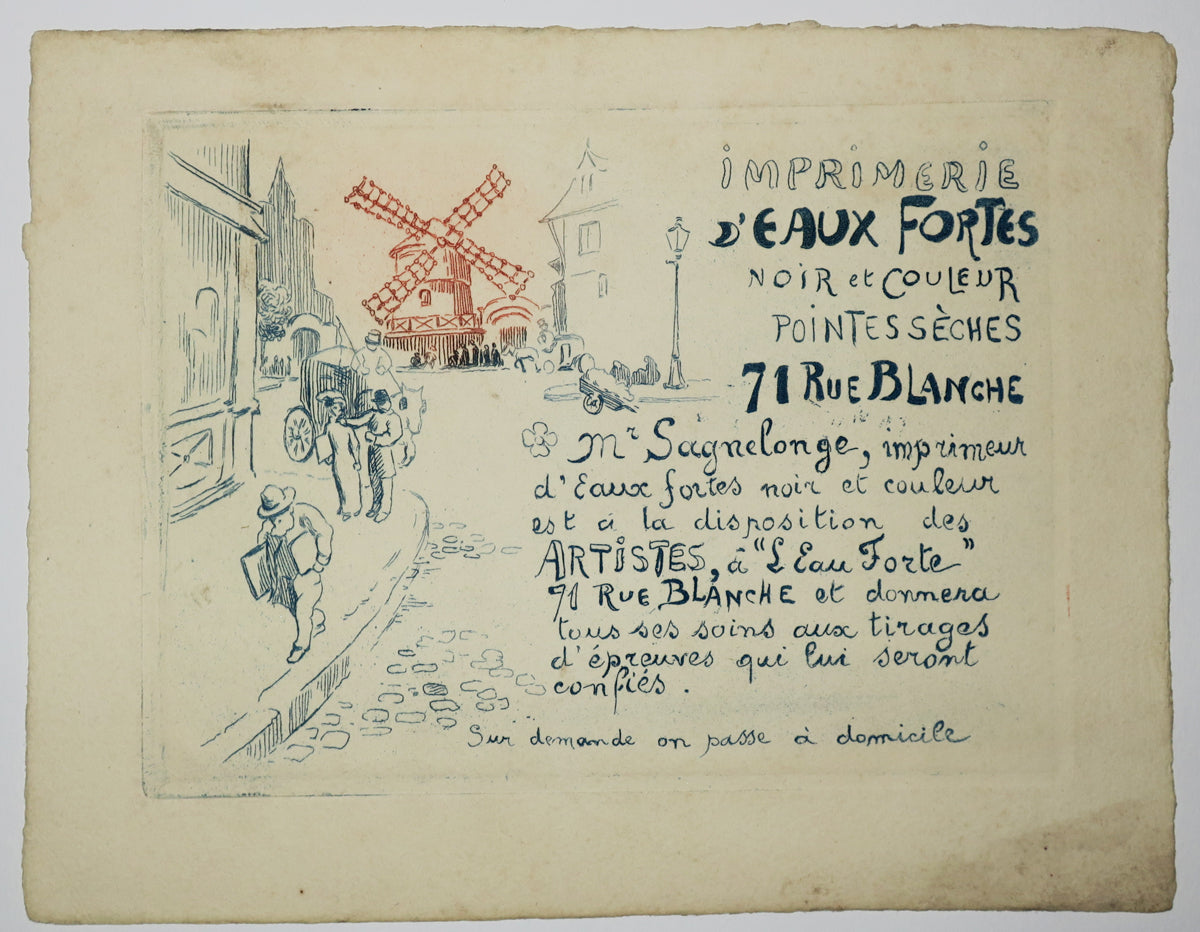 IMPRIMERIE
D'EAUX FORTES
NOIR et COULEUR
POINTES SÈCHES
71 RUE BLANCHE
Mr Sagnelonge, imprimeur
d'Eaux fortes noir et couleur
est à la disposition des
ARTISTES, à "L'Eau Forte"
71 RUE BLANCHE et donnera
tous ses soins aux tirages
d'épreuves qui lui seront
confiés.
Sur demande on passe à domicile